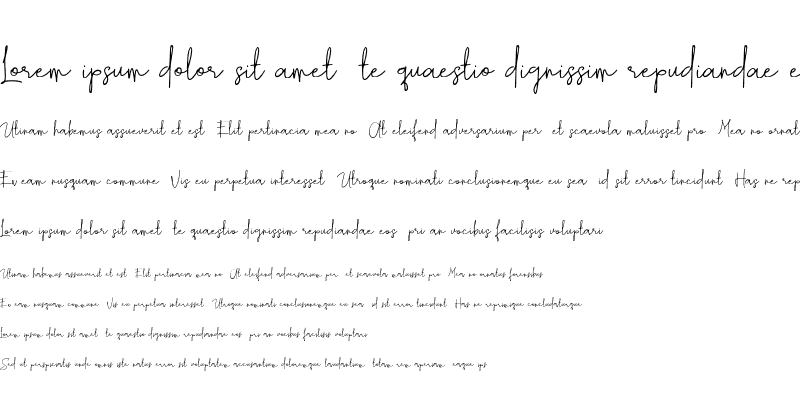 Lorem ipsum dolor sit amet te quaestio dignissim repudiandae e
Utinam habemus assueverit et est Elit pertinacia mea no At eleifend adversarium per et scaevola maluisset pro Mea no ornat
Ex eam nusquam commune Vis eu perpetua interesset Utroque nominati conclusionemque eu sea id sit error tincidunt Has ne rep
Lorem ipsum dolor sit amet te quaestio dignissim repudiandae eos pri an vocibus facilisis voluptari
Utinam habemus assueverit et est Elit pertinacia mea no At eleifend adversarium per et scaevola maluisset pro Mea no ornatus forensibus
Ex eam nusquam commune Vis eu perpetua interesset Utroque nominati conclusionemque eu sea id sit error tincidunt Has ne reprimique concludaturque
Lorem ipsum dolor sit amet te quaestio dignissim repudiandae eos pri an vocibus facilisis voluptari
Sed ut perspiciatis unde omnis iste natus error sit voluptatem accusantium doloremque laudantium totam rem aperiam eaque ips